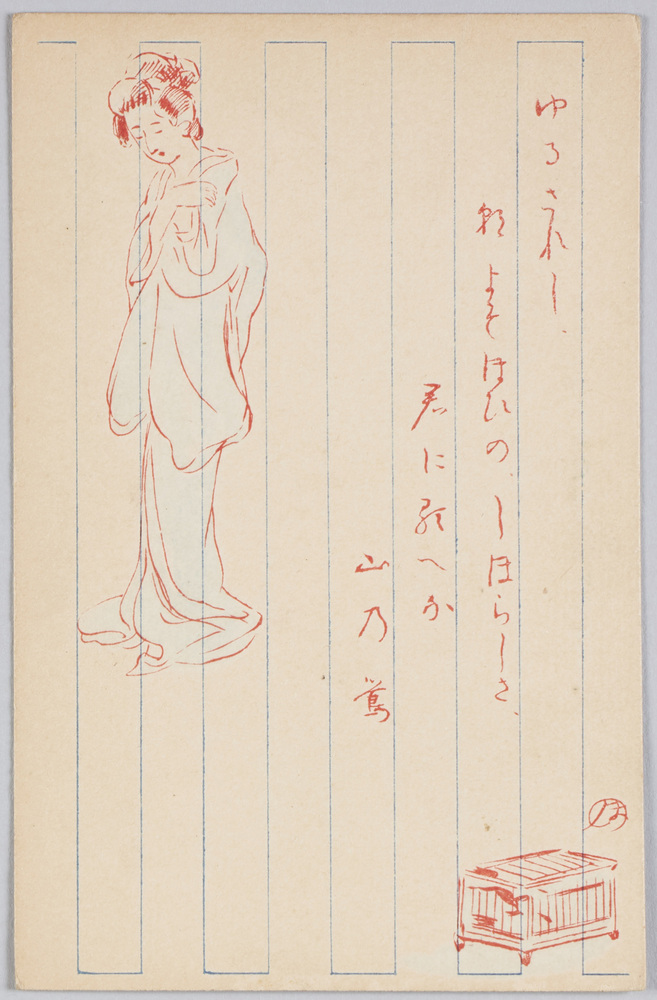 ゆるされし、
粧よそほひの、しほらしさ、
君に見へか
山乃鶯